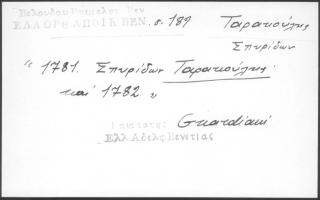 Βελούδου
ΕΛΛ ΟΡΘ ΑΠΟΙΚ ΒΕΝ. σ. 189 Ταρακούλης
Σπυρίδων
"1781. Σπυρίδων Ταρακούλης.
καί 1782 "
Guardiani
Ελλ Αδελφ Βενετίας